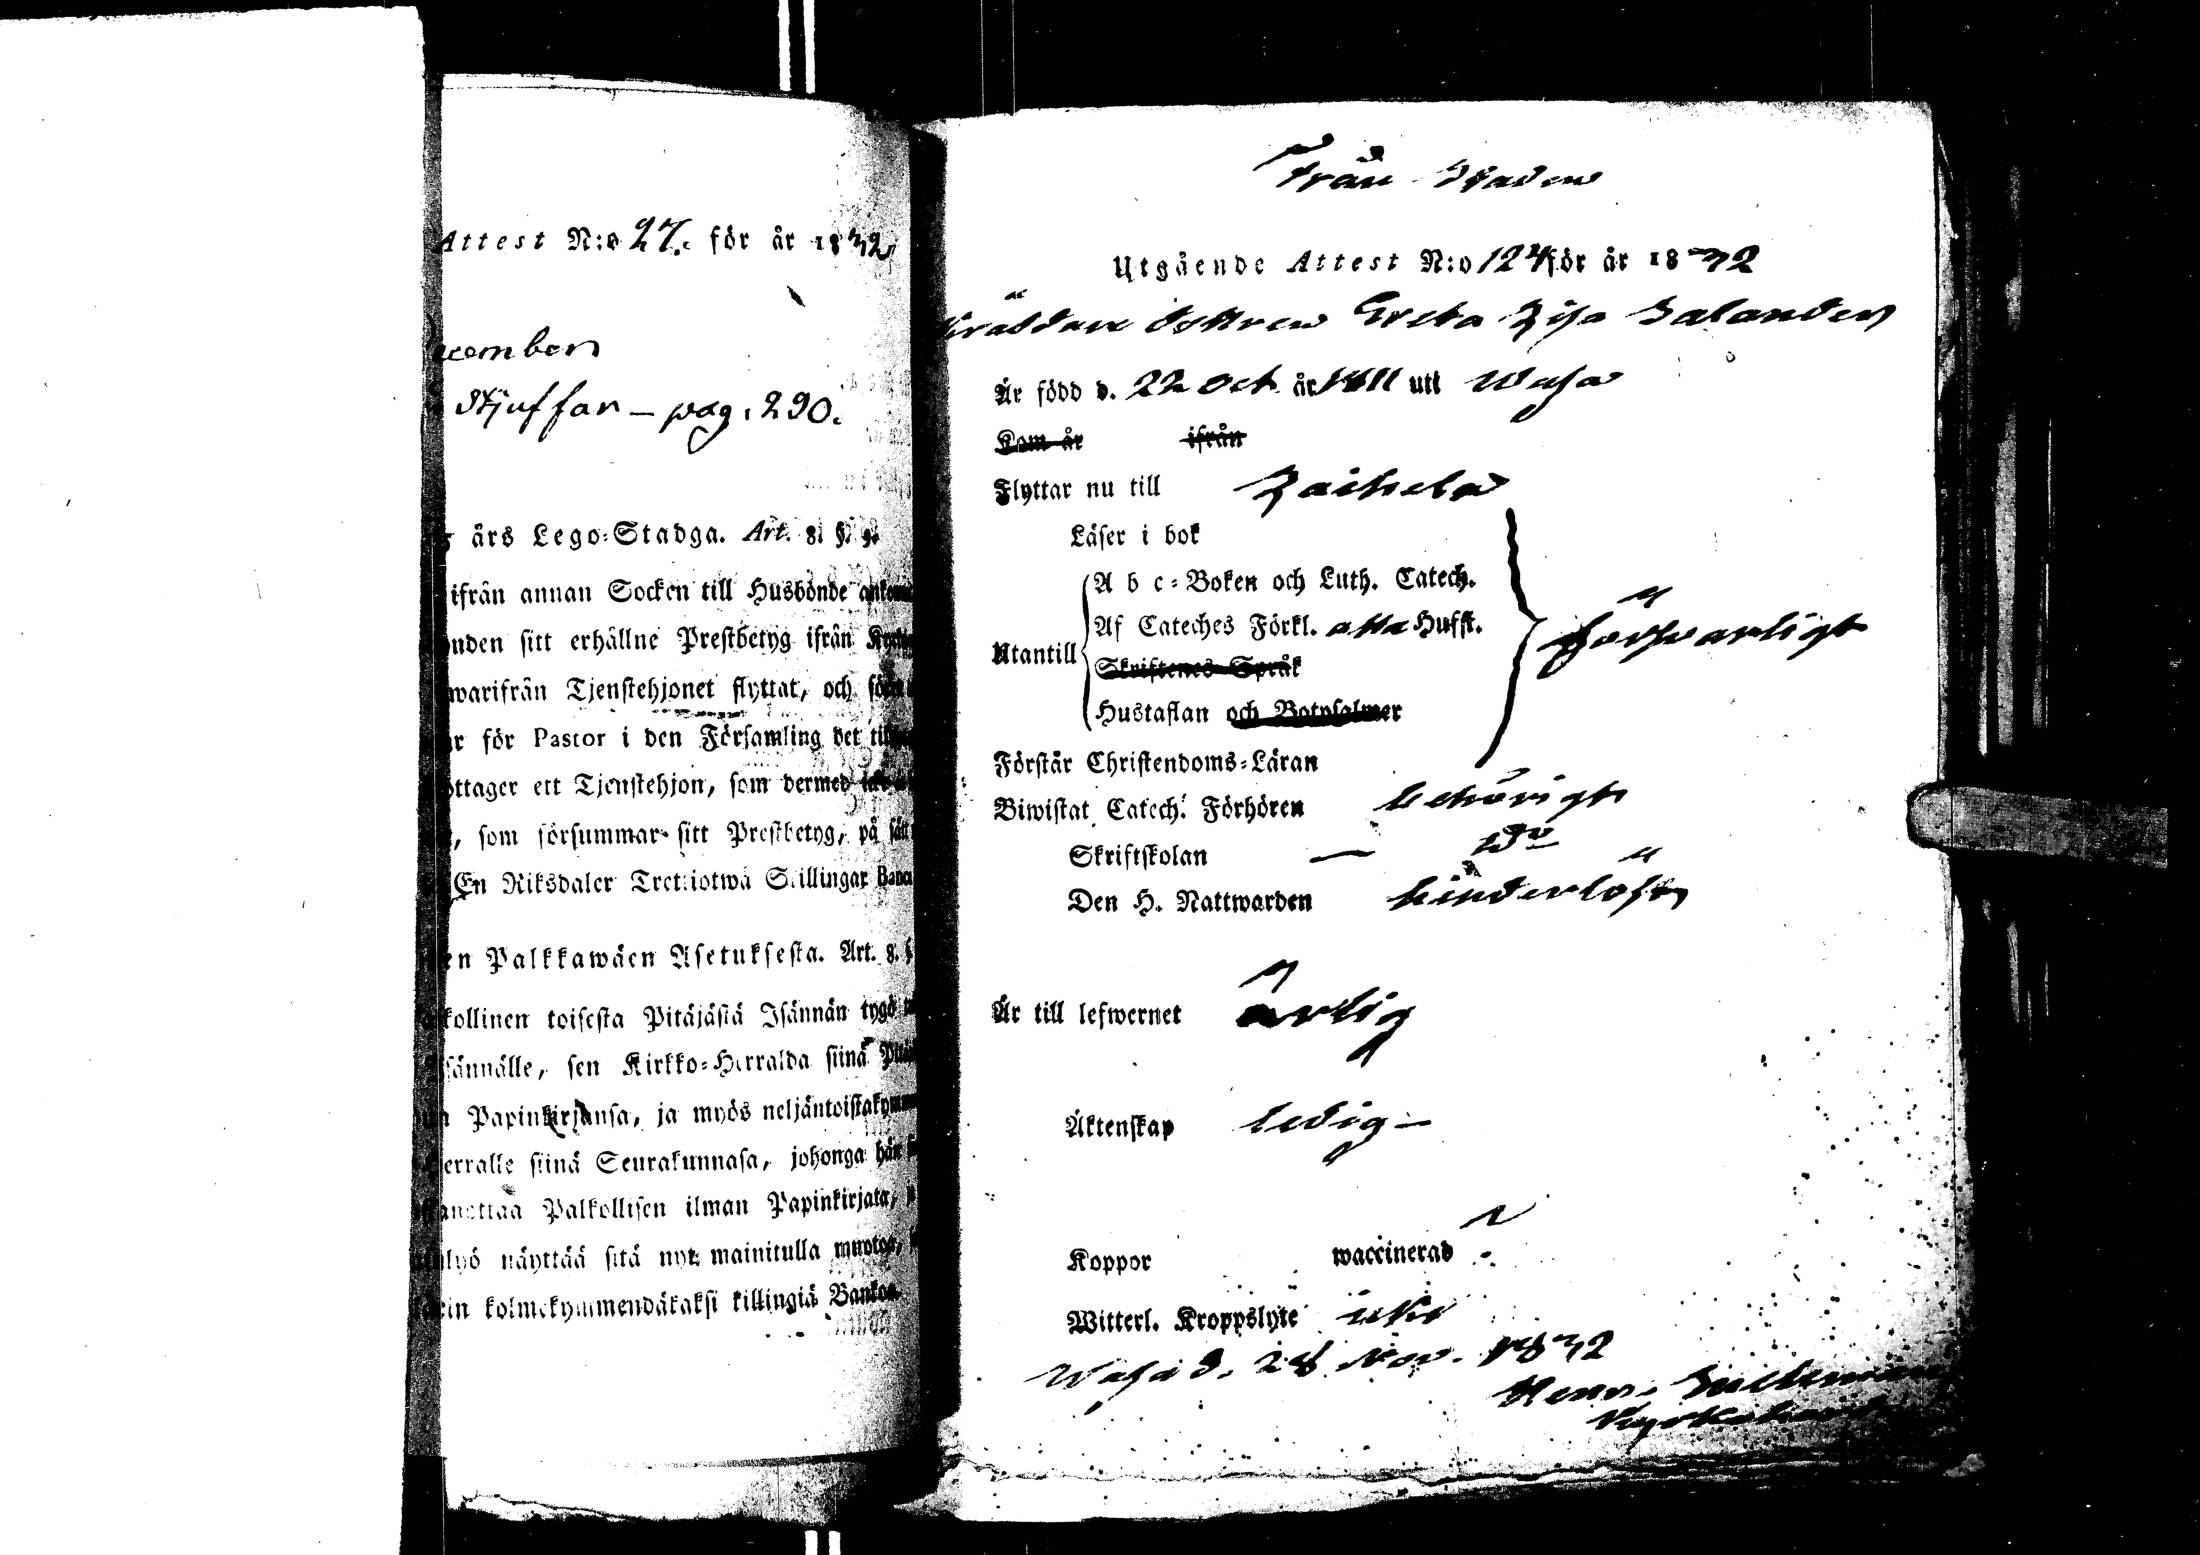 Attest N:o 27. för år 1832
cember
Stjuffar – pag. 290.
års Lego-Stadga. Art. 8. §. 9.
ifrån annan Socken till Husbonde
nden sitt erhållne Prestbetyg ifrån
warifrån Tjenstehjonet flyttat, och
r för Pastor i den Församling det
ottager ett Tjenstehjon, som dermed
, som försummar sitt Prestbetyg, på sätt
En Riksdaler Trettiotwå Skillingar Banco
en Palkkawäen Asetuksesta. Art. 8. §
kollinen toisesta Pitäjästä Isännän tygö
sännälle, sen Kirkko-Herralda siinä
Papinkirjansa, ja myös neljäntoistakymmen
erralle siinä Seurakunnasa, johonga hän
anottaa Palkollisen ilman Papinkirjata,
lyö näyttää sitä nyt mainitulla muotoa,
rin kolmekymmendäkaksi killingiä Bankos
Från Staden
Utgående Attest N:o 124 för år 1832
dottren Greta Lisa Salander
Är född d. 22 Oct. år 1811 uti Wasa
Kom år ifrån
Flyttar nu till Laihela
Läser i bok
A b c-Boken och Luth. Catech.
Af Cateches Förkl. alla Hufst.
Utantill
Skriftenes Språk
försvarligt
Hustaflan och Botpsalmer
Förstår Christendoms-Läran
Biwistat Catech. Förhören behörigt
Skriftskolan — do
Den H. Nattwarden hinderlös
Är till lefwernet ärlig
Äktenskap ledig –
Koppor waccinerad
Witterl. Kroppslyte icke
Wasa d. 28 Nov. 1832
Henr.
Kyrkoherde